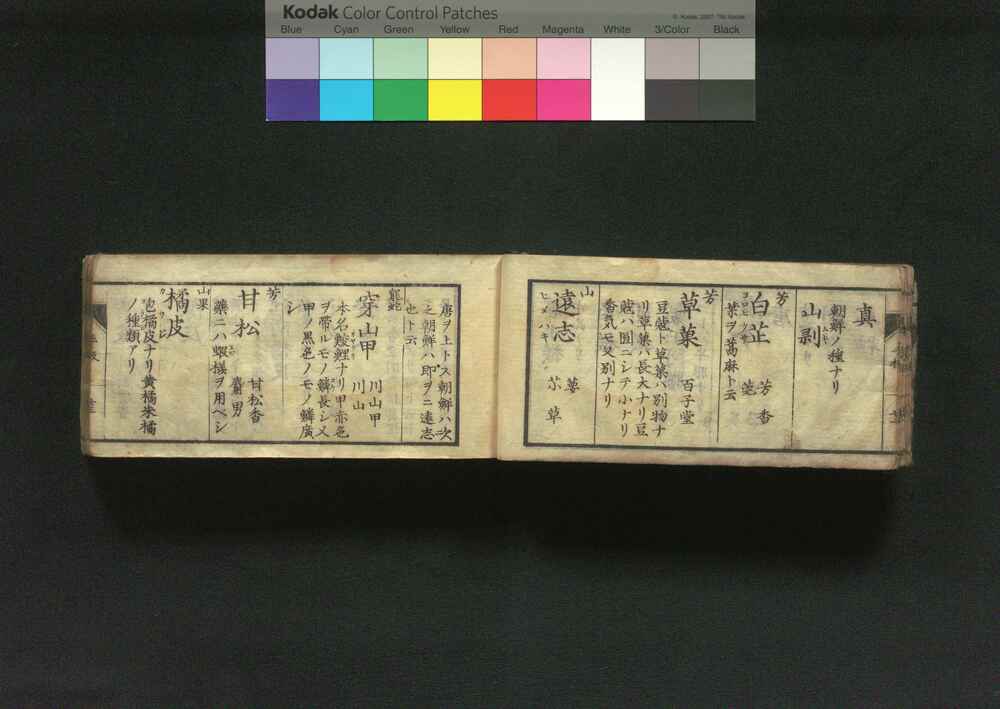 Kodak Color Control Patches
© Kodak, 2007 TM: Kodak
Blue Cyan Green Yellow Red Magenta White 3/Color Black
真
朝鮮ノ種ナリ
山剥
芳
白芷
芳香
葉ヲ蒿麻ト云
芳
草菓
百子堂
豆蔲ト草菓ハ別物ナ
リ草菓ハ長大ナリ豆
蔲ハ圓ニシテ小ナリ
香気モ又別ナリ
山
遠志
ヒメハギ
草
唐ヲ上トス朝鮮ハ次
之朝鮮ハ即ヲニ遠志
也ト云
穿山甲
川山甲
川山
本名鯪鯉ナリ甲赤色
ヲ帶ルモノ鱗長シ又
甲ノ黒色ノモノ鱗廣
シ
芳
甘松
甘松香
藥ニハ ヲ用ベシ
山果
橘皮
橘皮ナリ黄橘朱橘
ノ種類アリ